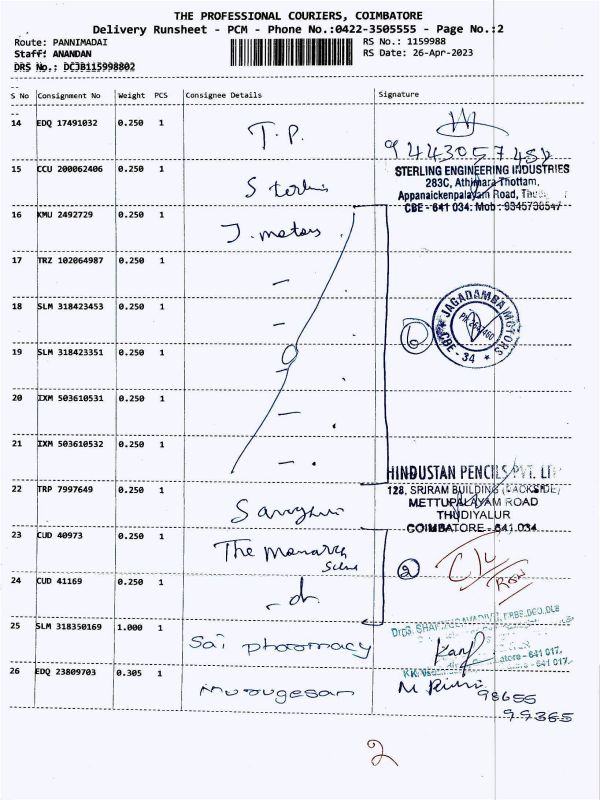 THE PROFESSIONAL COURIERS, COIMBATORE
Delivery Runsheet - PCM - Phone No.:0422-3505555 - Page No.:2
Route: PANNIMADAI RS No.: 1159988
Staff: ANANDAN RS Date: 26-Apr-2023
DRS No.: DCJB115998802
S No Consignment No Weight PCS Consignee Details Signature
14 EDQ 17491032 0.250 1 T.P.
15 CCU 200062406 0.250 1
STERLING ENGINEERING INDUSTRIES
283C, Athimara Thottam,
Appanaickenpalayam Road,
CBE - 641 034. Mob :
16 KMU 2492729 0.250 1 J. motors
17 TRZ 102064987 0.250 1 —
18 SLM 318423453 0.250 1 —
JAGADAMBA MOTORS
CBE - 34
6
19 SLM 318423351 0.250 1
20 IXM 503610531 0.250 1 —
21 IXM 503610532 0.250 1 —
HINDUSTAN PENCILS PVT. LT
128, SRIRAM BUILDING (BACKSIDE)
METTUPALAYAM ROAD
THUDIYALUR
COIMBATORE - 641 034
22 TRP 7997649 0.250 1
23 CUD 40973 0.250 1 The
2
24 CUD 41169 0.250 1 - do
25 SLM 318350169 1.000 1 Sai pharmacy
26 EDQ 23809703 0.305 1 Murugesan
98655
99365
2